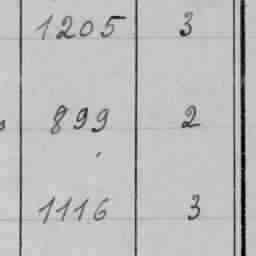 1205 3
899 2
1116 3